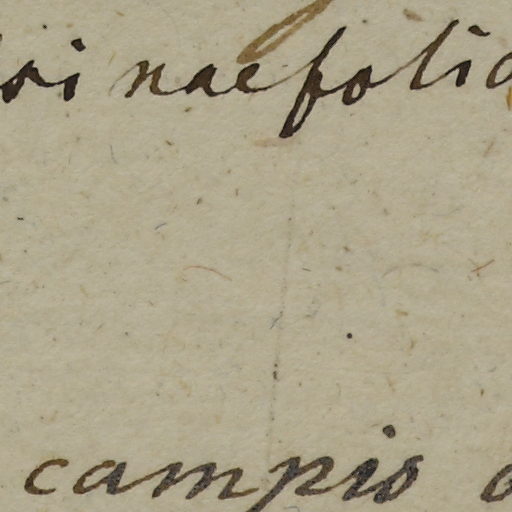 sinaefolia
campis